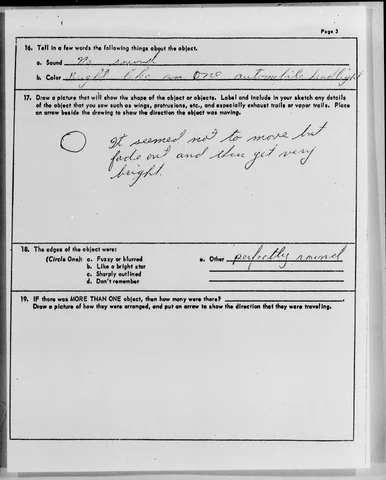 Page 3
16. Tell in a few words the following things about the object.
a. Sound No sound
b. Color Bright like one automobile headlight
17. Draw a picture that will show the shape of the object or objects. Label and include in your sketch any details
of the object that you saw such as wings, protrusions, etc., and especially exhaust trails or vapor trails. Place
an arrow beside the drawing to show the direction the object was moving.
It seemed not to move but
fade out and then get very
bright.
18. The edges of the object were:
(Circle One): a. Fuzzy or blurred
b. Like a bright star
c. Sharply outlined
d. Don't remember
e. Other perfectly round
19. IF there was MORE THAN ONE object, then how many were there?
Draw a picture of how they were arranged, and put an arrow to show the direction that they were traveling.